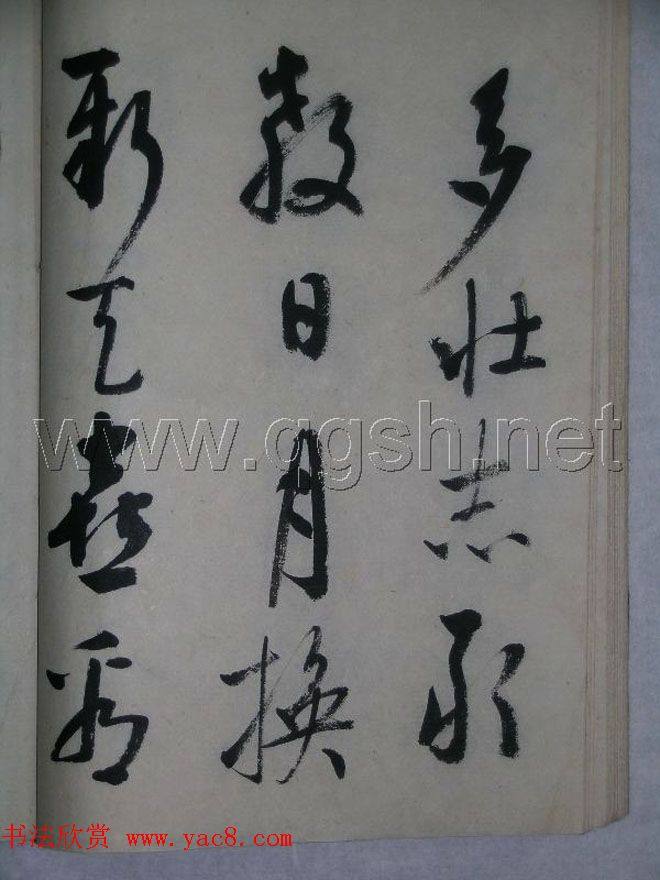 多壮志敢
教日月换
新天喜看
www.qgsh.net
书法欣赏 www.yac8.com